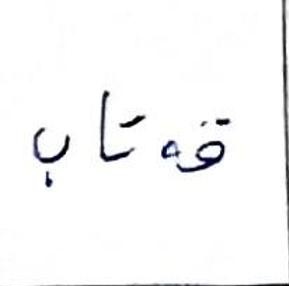 قوتاب